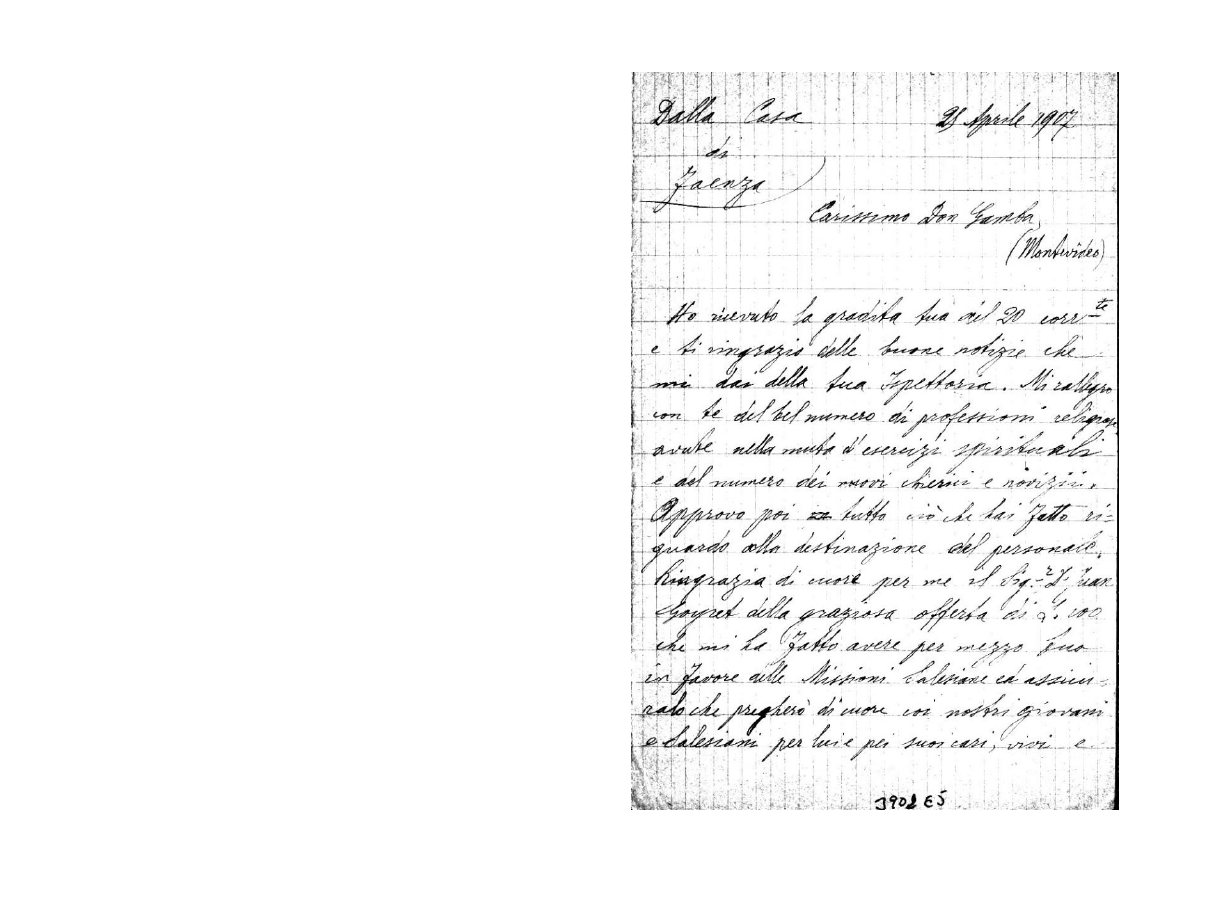 Dalla Casa
25 Aprile 1907
di
Faenza
Carissimo Don Gamba,
(Montevideo)
Ho ricevuto la gradita tua del 20 corrte
e ti ringrazio delle buone notizie che
mi dai della tua Ispettoria. Mi rallegro
con te del bel numero di professioni religiose
avute nella muta d'esercizi spirituali
e del numero dei nuovi chierici e novizii.
Approvo poi tutto ciò che hai fatto ri-
guardo alla destinazione del personale.
Ringrazia di cuore per me il Sig.r D. Juan
della graziosa offerta di L. 100
che mi ha fatto avere per mezzo tuo
in favore delle Missioni Salesiane ed assicu-
ralo che pregherò di cuore coi nostri giovani
e Salesiani per lui e pei suoi cari, vivi e
3902 E5